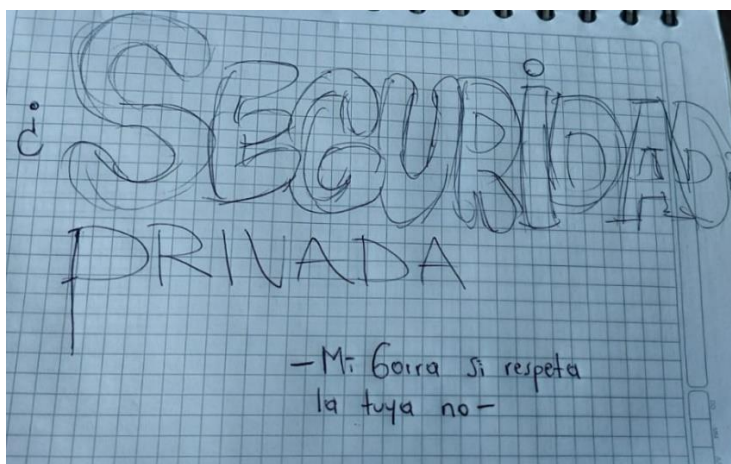 ¿SEGURIDAD
PRIVADA
-Mi Gorra si respeta
la tuya no-